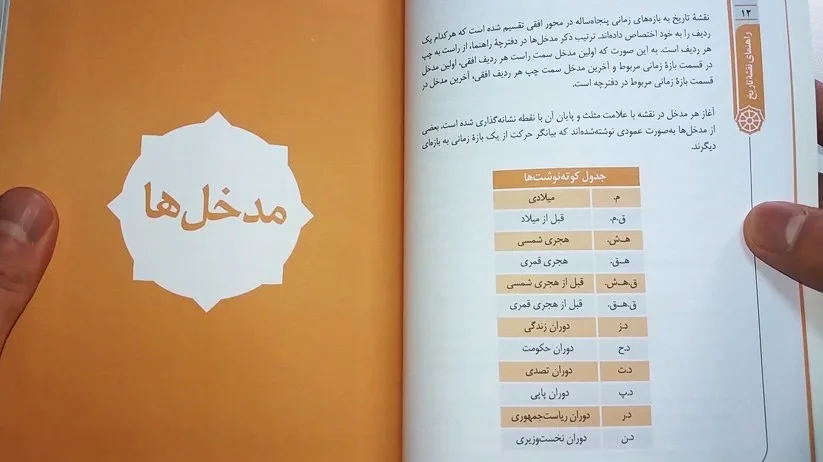 ۱۲
راهنمای نقشهٔ تاریخ
نقشهٔ تاریخ به بازه‌های زمانی پنجاه‌ساله در محور افقی تقسیم شده است که هرکدام یک
ردیف را به خود اختصاص داده‌اند. ترتیب ذکر مدخل‌ها در دفترچهٔ راهنما، از راست به چپ
هر ردیف است. به این صورت که اولین مدخل سمت راست هر ردیف افقی، اولین مدخل
در قسمت بازهٔ زمانی مربوط و آخرین مدخل سمت چپ هر ردیف افقی، آخرین مدخل در
قسمت بازهٔ زمانی مربوط در دفترچه است.
آغاز هر مدخل در نقشه با علامت مثلث و پایان آن با نقطه نشانه‌گذاری شده است. بعضی
از مدخل‌ها به‌صورت عمودی نوشته‌شده‌اند که بیانگر حرکت از یک بازهٔ زمانی به بازه‌ای
دیگرند.
جدول کوته‌نوشت‌ها
م. میلادی
ق.م. قبل از میلاد
هـ.ش. هجری شمسی
هـ.ق. هجری قمری
ق.هـ.ش. قبل از هجری شمسی
ق.هـ.ق. قبل از هجری قمری
د.ز دوران زندگی
د.ح دوران حکومت
د.ت دوران تصدی
د.پ دوران پاپی
د.ر دوران ریاست‌جمهوری
د.ن دوران نخست‌وزیری
مدخل‌ها